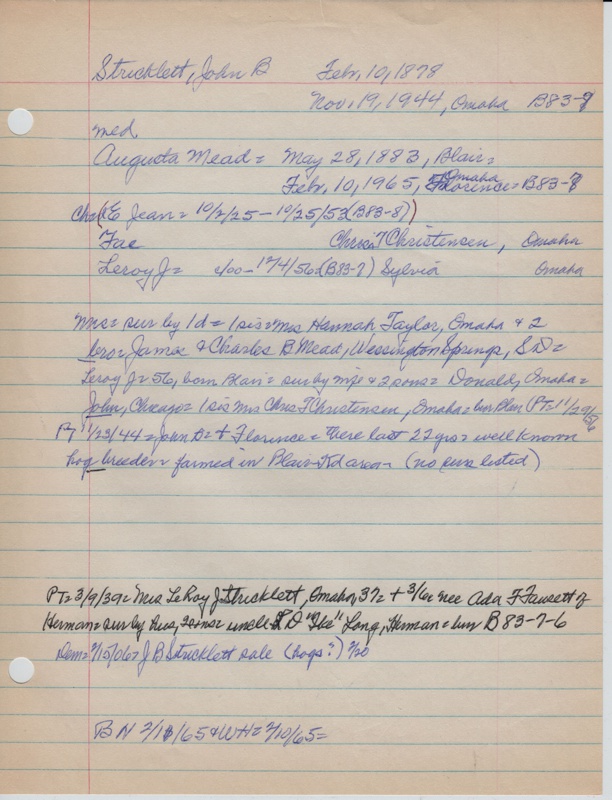 Stricklett, John B Feb, 10, 1878
Nov. 19, 1944, Omaha B83-8
med
Augusta Mead = May 28, 1883, Blair=
Omaha
Feb, 10, 1965, Florence = B83-8
Ch=(E Jean = 10/2/25-10/25/53 (B83-8))
Fae Chris T Christensen, Omaha
Leroy J= (B83-7) Sylvia Omaha
Mrs = sur by 1d = 1 sis = Mrs Hannah Taylor, Omaha & 2
bro= James & Charles B Mead, Wessington Springs, SD=
Leroy J= 56, born Blair = sur by wife & 2 sons = Donald, Omaha=
John, Chicago = 1 sis Mrs Chris T Christensen, Omaha = bur Blair (PT= 11/29/56
PT 11/23/44 = John B= + Florence = there last 27 yrs = well known
hog breeder = farmed in Blair-Kd area- (no survs listed)
PT= 3/9/39= Mrs LeRoy J Stricklett, Omaha, 37= + 3/6= nee Ada F Fawcett of
Herman = sur by hus, 2 sons = uncle L D "Ike" Long, Herman = bur B 83-7-6
Dem= 2/15/06= J B Stricklett sale (hogs?) 2/20
BN 2/18/65 & WH= 2/10/65=